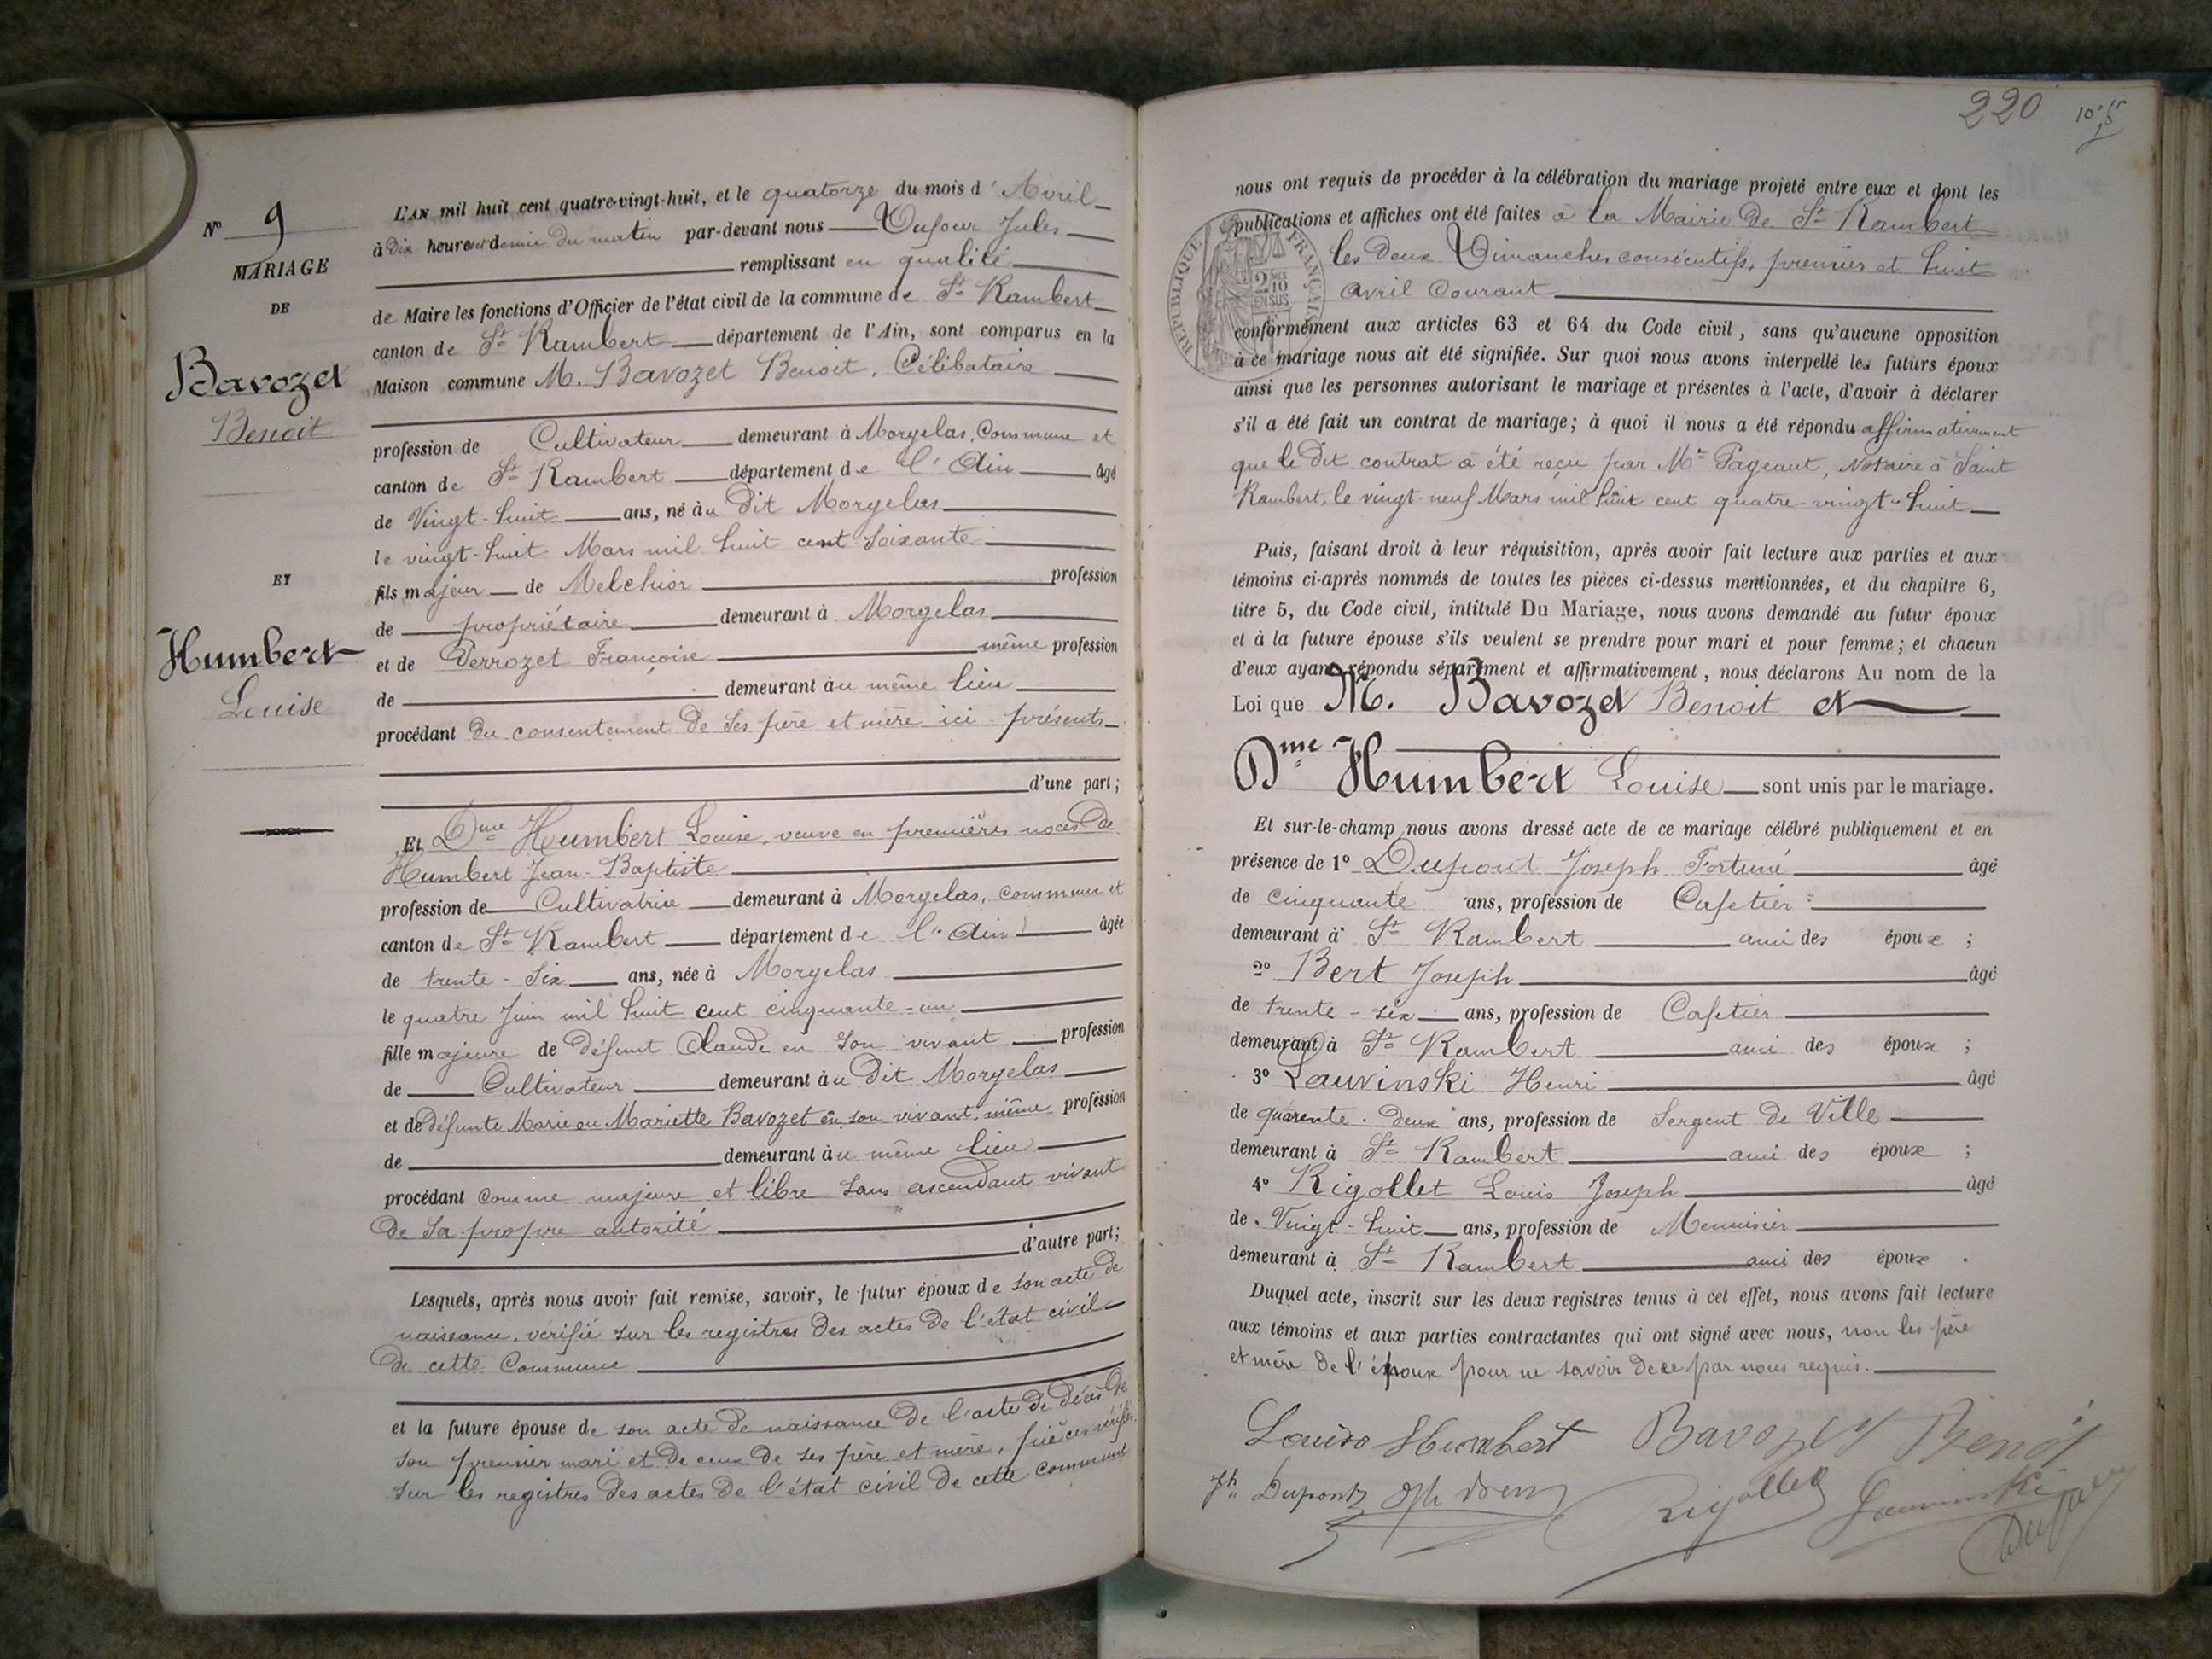 N° 9
MARIAGE
DE
Bavozet
Benoit
ET
Humbert
Louise
L'AN mil huit cent quatre-vingt-huit, et le quatorze du mois d'Avril
à Dix heures et demie du matin par-devant nous Dufour Jules
remplissant en qualité
de Maire les fonctions d'Officier de l'état civil de la commune de St Rambert
canton de St Rambert département de l'Ain, sont comparus en la
Maison commune M. Bavozet Benoit, Célibataire
profession de Cultivateur demeurant à Morgelas, Commune et
canton de St Rambert département de l'Ain âgé
de Vingt-huit ans, né au Dit Morgelas
le vingt-huit Mars mil huit cent soixante
fils majeur de Melchior profession
de propriétaire demeurant à Morgelas
et de Perrozet Françoise même profession
de demeurant au même lieu
procédant du consentement de ses père et mère ici présents
d'une part;
Et Dme Humbert Louise, veuve en premières noces de
Humbert Jean-Baptiste
profession de Cultivatrice demeurant à Morgelas, commune et
canton de St Rambert département de l'Ain âgée
de trente-six ans, née à Morgelas
le quatre Juin mil huit cent cinquante-un
fille majeure de défunt Claude en son vivant profession
de Cultivateur demeurant au Dit Morgelas
et de défunte Marie ou Mariette Bavozet en son vivant même profession
de demeurant au même lieu
procédant comme majeure et libre sans ascendant vivant
de sa propre autorité
d'autre part;
Lesquels, après nous avoir fait remise, savoir, le futur époux de son acte de
naissance, vérifié sur les registres des actes de l'état civil
de cette Commune
et la future épouse de son acte de naissance de l'acte de décès de
son premier mari et de ceux de ses père et mère, pièces vérifiées
sur les registres des actes de l'état civil de cette commune
220
RÉPUBLIQUE FRANÇAISE
2/10
EN SUS
nous ont requis de procéder à la célébration du mariage projeté entre eux et dont les
publications et affiches ont été faites à la Mairie de St Rambert
les deux Dimanches consécutifs, premier et huit
avril Courant
conformément aux articles 63 et 64 du Code civil, sans qu'aucune opposition
à ce mariage nous ait été signifiée. Sur quoi nous avons interpellé les futurs époux
ainsi que les personnes autorisant le mariage et présentes à l'acte, d'avoir à déclarer
s'il a été fait un contrat de mariage; à quoi il nous a été répondu affirmativement
que le dit contrat a été reçu par Me Pageaut, Notaire à Saint
Rambert, le vingt-neuf Mars mil huit cent quatre-vingt-huit
Puis, faisant droit à leur réquisition, après avoir fait lecture aux parties et aux
témoins ci-après nommés de toutes les pièces ci-dessus mentionnées, et du chapitre 6,
titre 5, du Code civil, intitulé Du Mariage, nous avons demandé au futur époux
et à la future épouse s'ils veulent se prendre pour mari et pour femme; et chacun
d'eux ayant répondu séparément et affirmativement, nous déclarons Au nom de la
Loi que M. Bavozet Benoit et
Dme Humbert Louise sont unis par le mariage.
Et sur-le-champ nous avons dressé acte de ce mariage célébré publiquement et en
présence de 1° Dupont Joseph Fortuné âgé
de cinquante ans, profession de Cafetier
demeurant à St Rambert ami des époux ;
2° Bert Joseph âgé
de trente-six ans, profession de Cafetier
demeurant à St Rambert ami des époux ;
3° Lauvinski Henri âgé
de quarente-deux ans, profession de Sergent de Ville
demeurant à St Rambert ami des époux ;
4° Rigollet Louis Joseph âgé
de Vingt-huit ans, profession de Menuisier
demeurant à St Rambert ami des époux .
Duquel acte, inscrit sur les deux registres tenus à cet effet, nous avons fait lecture
aux témoins et aux parties contractantes qui ont signé avec nous, non les père
et mère de l'époux pour ne savoir de ce par nous requis.
Louise Humbert Bavozet Benoit
Jh Dupont Rigollet Lauvinski
Dufour